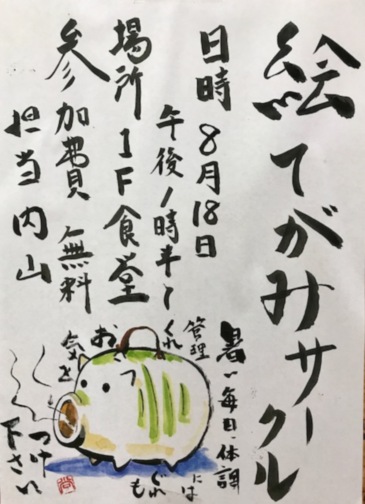 絵てがみサークル
日時 8月18日
午後1時半〜
場所 1F食堂
参加費 無料
担当 内山
暑い毎日、体調
管理には
くれぐれも
お
気を
つけ
下さい